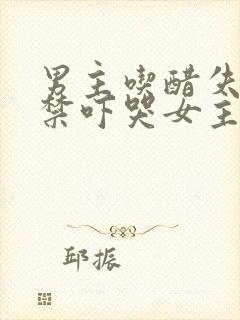 男主喫醋失
禁吓哭女主
邱振